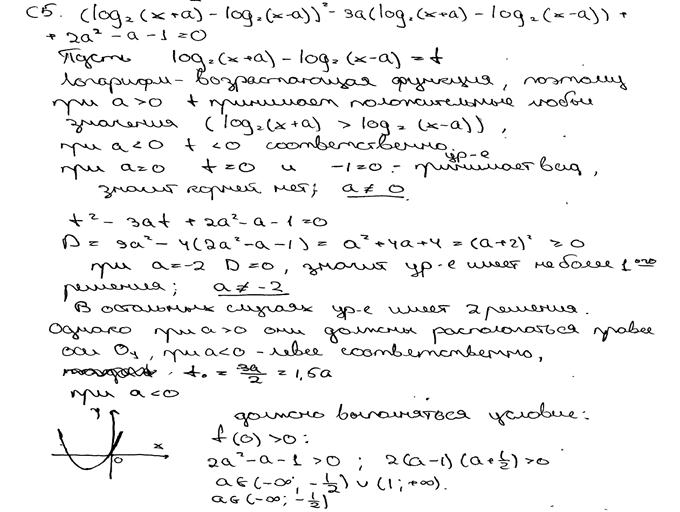 С5. (log₂(x+a) - log₂(x-a))² - 3a(log₂(x+a) - log₂(x-a)) +
+ 2a² - a - 1 = 0
Пусть log₂(x+a) - log₂(x-a) = t
Логарифм - возрастающая функция, поэтому
при a>0 t принимает положительные любые
значения (log₂(x+a) > log₂(x-a)),
при a<0 t<0 соответственно,
при a=0 t=0 и -1=0 - принимает вид ур-е,
значит корней нет; a≠0.
t² - 3at + 2a² - a - 1 = 0
D = 9a² - 4(2a² - a - 1) = a² + 4a + 4 = (a+2)² ≥ 0
при a=-2 D=0, значит ур-е имеет не более 1ого
решения; a≠-2
В остальных случаях ур-е имеет 2 решения.
Однако при a>0 они должны располагаться правее
оси Oy, при a<0 - левее соответственно,
t₀ = 3a/2 = 1,5a
при a<0
должно выполняться условие:
y x 0
f(0)>0:
2a² - a - 1 > 0 ; 2(a-1)(a+1/2)>0
a∈(-∞; -1/2)∪(1; +∞).
a∈(-∞; -1/2)